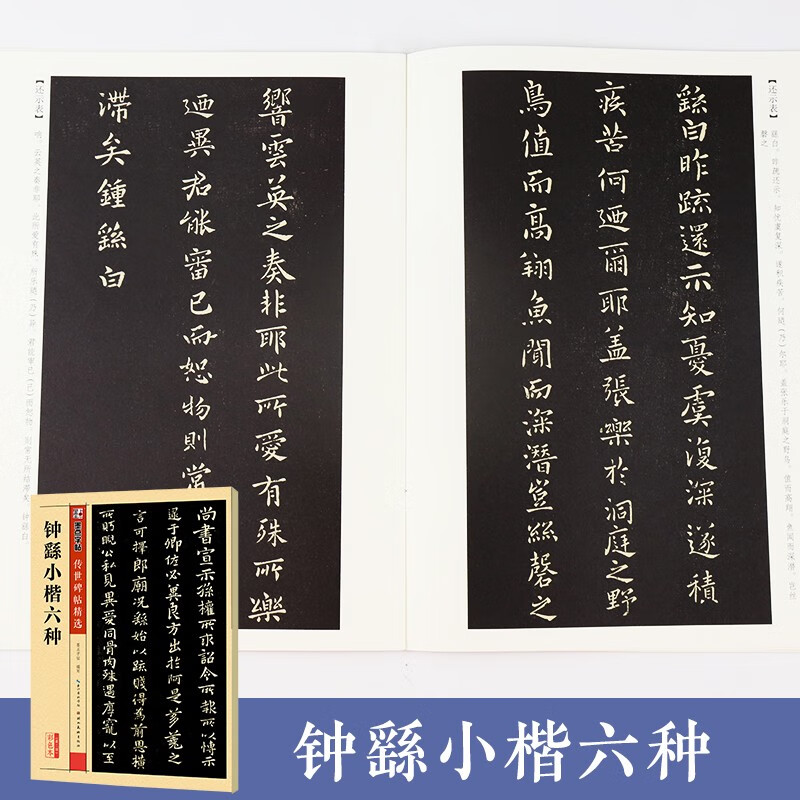 【还示表】
繇白昨疏還示知憂虞復深遂積
疾苦何迺爾耶盖張樂於洞庭之野
鳥值而高翔魚聞而深潛豈絲磬之
響雲英之奏非耶此所愛有殊所樂
迺異君能審己而恕物則常
滯矣鍾繇白
【还示表】
墨点字帖
传世碑帖精选
钟繇小楷六种
彩色本
尚書宣示孫權所求詔令所報所以博示
逮于卿佐必冀良方出於阿是芻蕘之
言可擇郎廟况繇始以疏賤得為前恩橫
所盼睨公私見異愛同骨肉殊遇厚寵以至
钟繇小楷六种